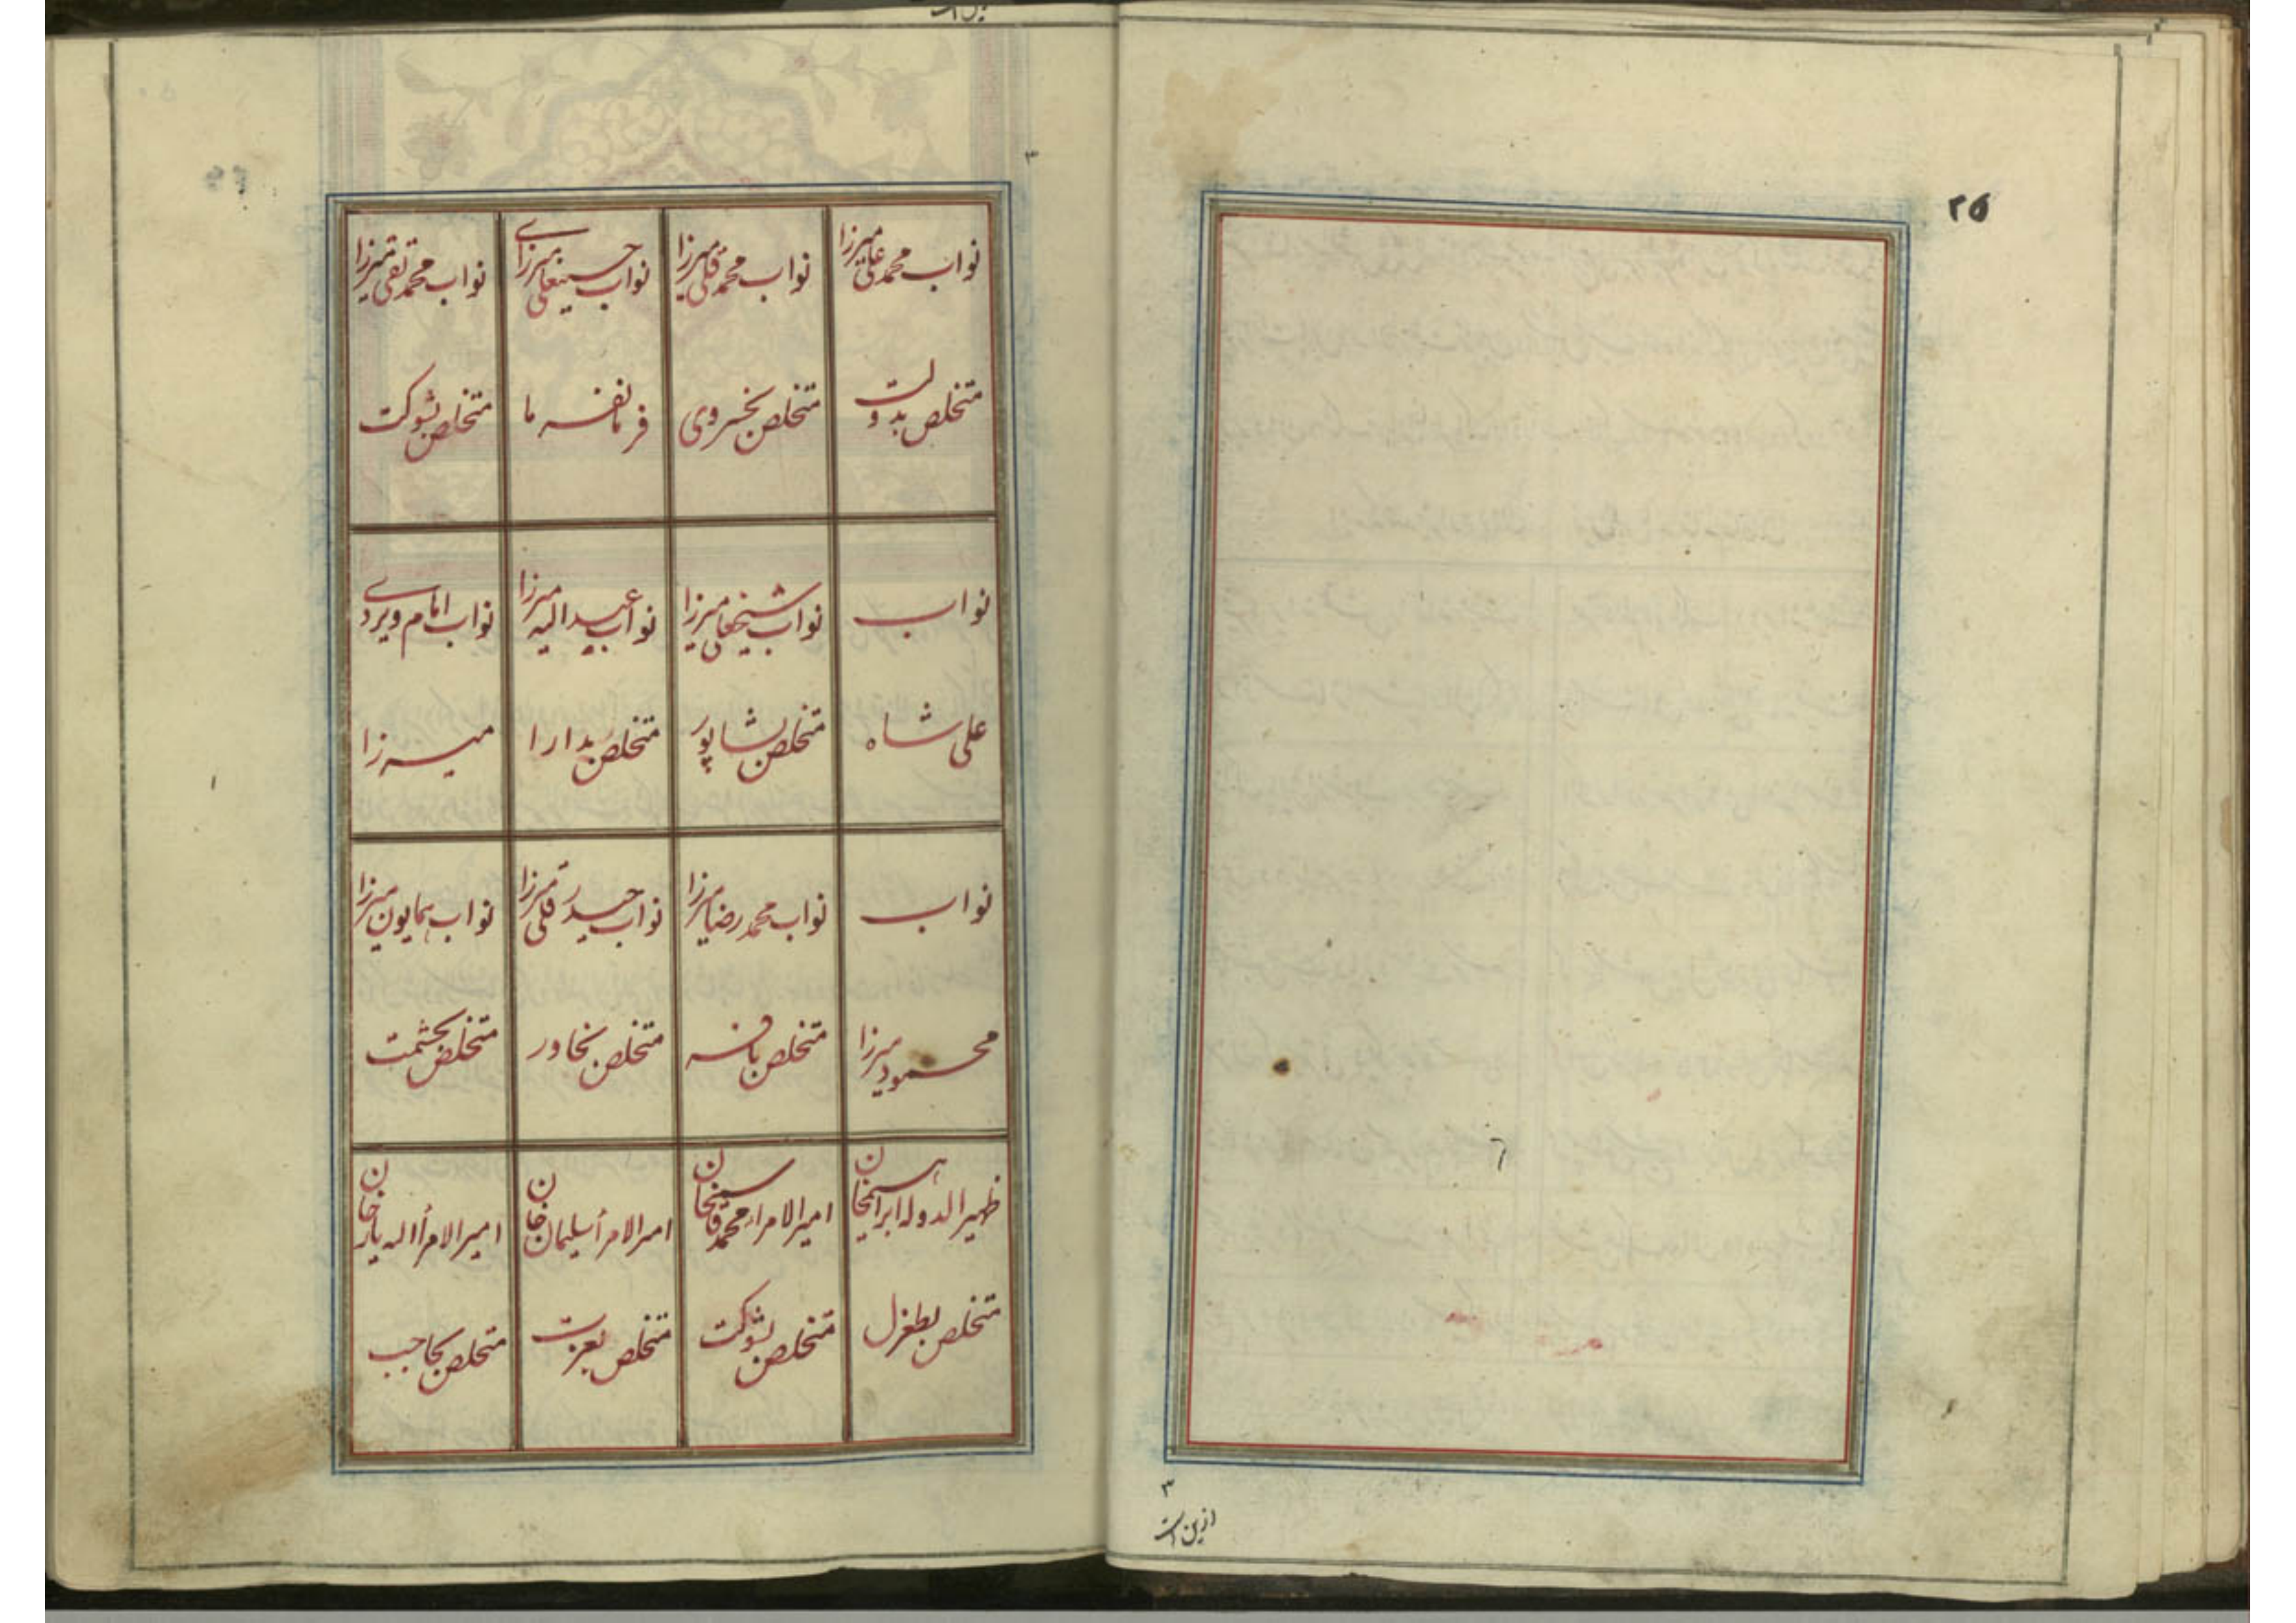 ۲۵
۳
ازین است
۳
نواب محمد علی میرزا
متخلص بدولت
نواب محمد قلی میرزا
متخلص بخسروی
نواب حسینعلی میرزای
فرمانفرما
نواب محمد تقی میرزا
متخلص بشوکت
نواب
علی شاه
نواب شیخعلی میرزا
متخلص بشاپور
نواب عبدالله میرزا
متخلص بدارا
نواب امام ویردی
میرزا
نواب
محمود میرزا
نواب محمد رضا میرزا
متخلص بافسر
نواب حیدر قلی میرزا
متخلص بخاور
نواب همایون میرزا
متخلص بحشمت
ظهیر الدوله ابراهیم خان
متخلص بطغرل
امیر الامراء محمد قاسم خان
متخلص بشوکت
امر الامرأ سلیمان خان
متخلص بعزت
امیر الامرأ اله یار خان
متخلص بحاجب